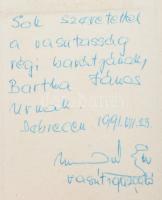 Sok szeretettel
a vasutasság
régi barátjának,
Bartha János
Úrnak
Debrecen, 1991. VII. 23.
vasútigazgató